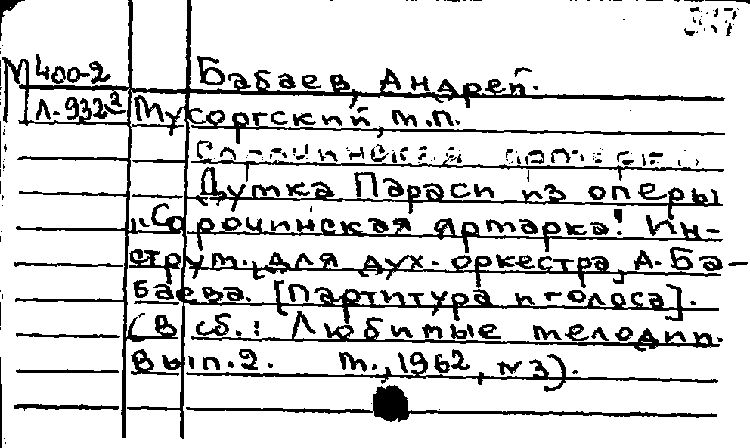 347
М 400-2 Бабаев, Андрей.
Л-932² Мусоргский, М.П.
Сорочинская ярмарка
Думка Параси из оперы
„Сорочинская ярмарка". Ин-
струм. для дух. оркестра, А. Ба-
баева. [Партитура и голоса].
(В сб.: Любимые мелодии.
Вып. 2. М., 1962, № 3).